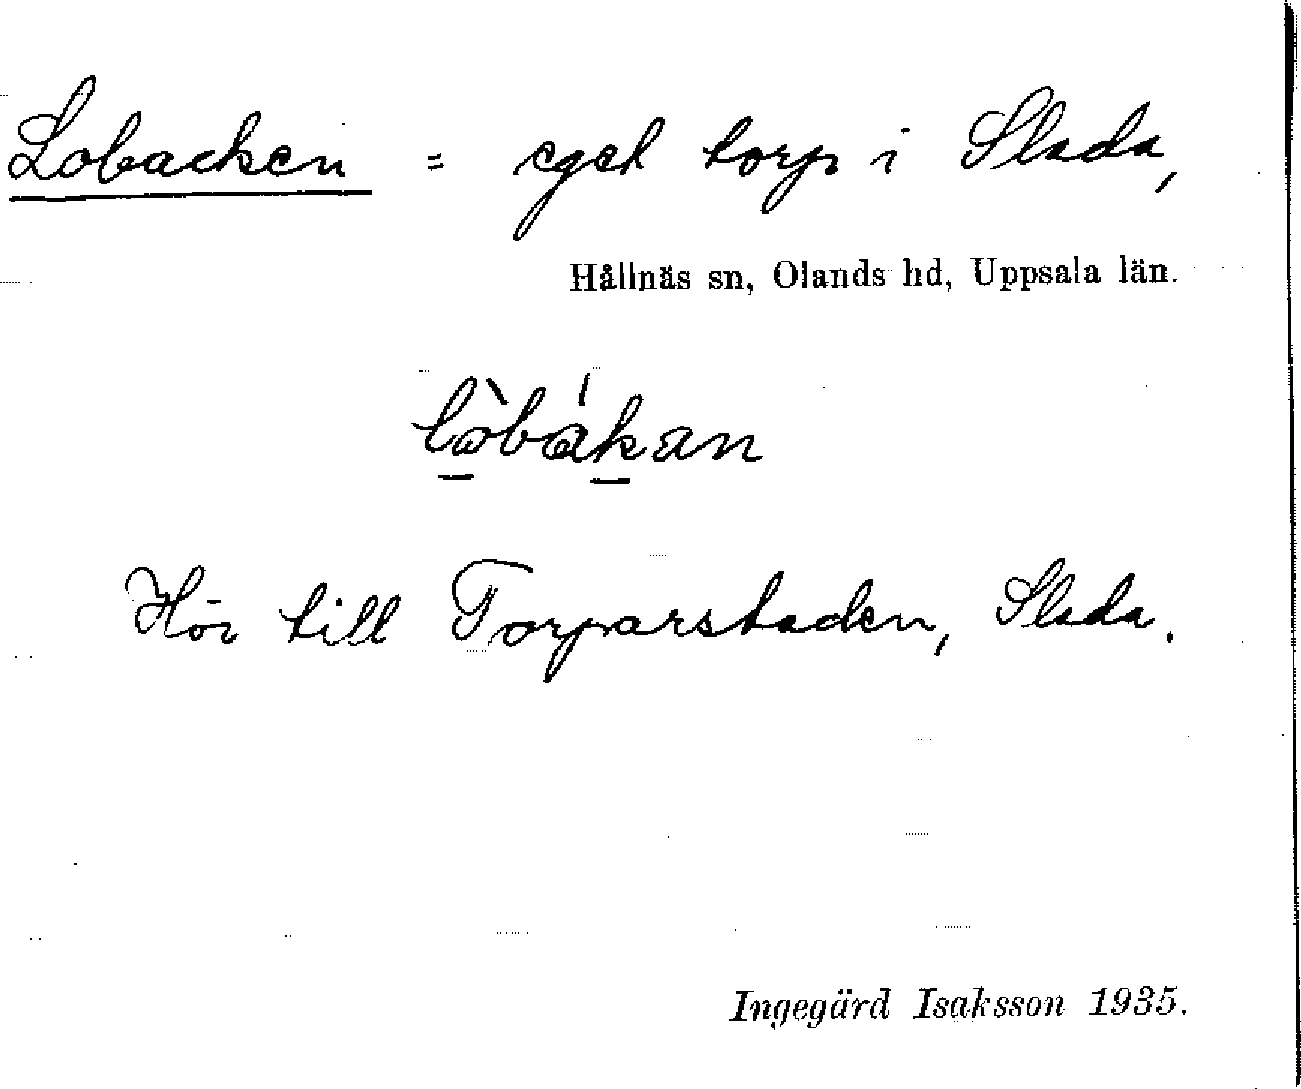 Lobacken = eget torp i Slada,
Hållnäs sn, Olands hd, Uppsala län.
lòbákan
Hör till Torparstaden, Slada.
Ingegärd Isaksson 1935.